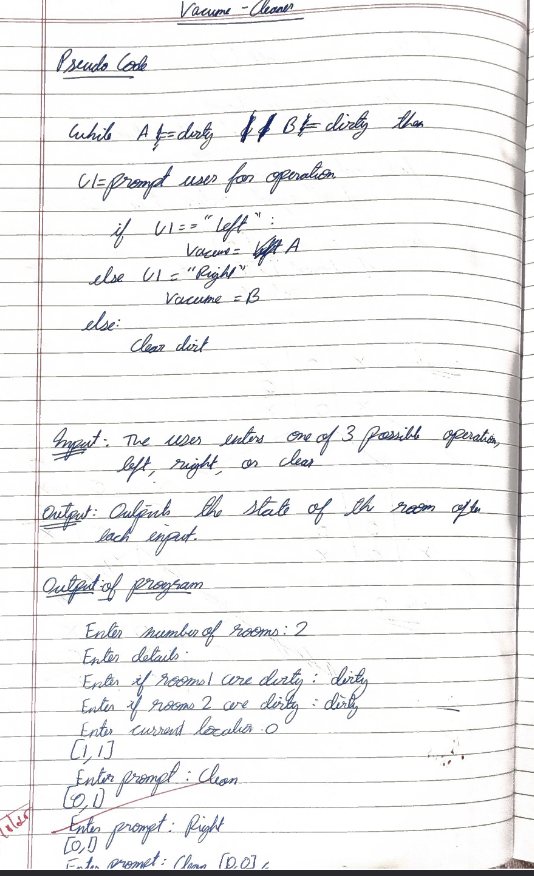 Vacume - Cleaner
Pseudo Code
While A != dirty || B != dirty then
U1=prompt user for operation
if U1 == "Left" :
Vacume = A
else U1 = "Right"
Vacume = B
else:
Clear dirt
Input: The user enters one of 3 possible operation,
left, right, or clear
Output: Outputs the state of th room after
each input.
Output of program
Enter number of rooms: 2
Enter details:
Enter if rooms 1 are dirty : dirty
Enter if rooms 2 are dirty : dirty
Enter current location 0
[1,1]
Enter prompt : Clean
[0,1]
Enter prompt : Right
[0,1]
Enter prompt: Clean [0,0]